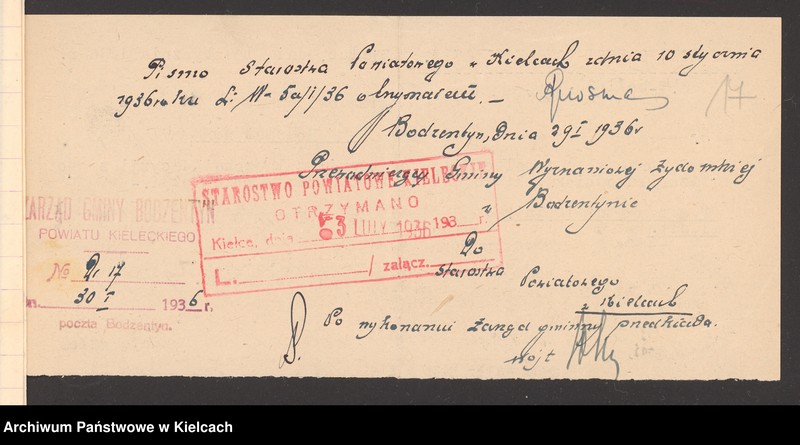 Pismo Starostwa Powiatowego w Kielcach z dnia 10 stycznia
1936 roku L: W- 5a/1/36 otrzymałem. –
17
Bodzentyn, dnia 29 I 1936 r
Gminy Wyznaniowej Żydowskiej
w Bodzentynie
STAROSTWO POWIATOWE KIELECKIE
OTRZYMANO
Kielce, dnia 3 LUTY 1936 193 r.
L. / załącz.
ZARZĄD GMINY BODZENTYN
POWIATU KIELECKIEGO
№ 17
30 I 1936 r.
poczta Bodzentyn.
Do
Starostwa Powiatowego
w Kielcach
Po wykonaniu Zarząd gminny przedkłada.
Wójt
Archiwum Państwowe w Kielcach